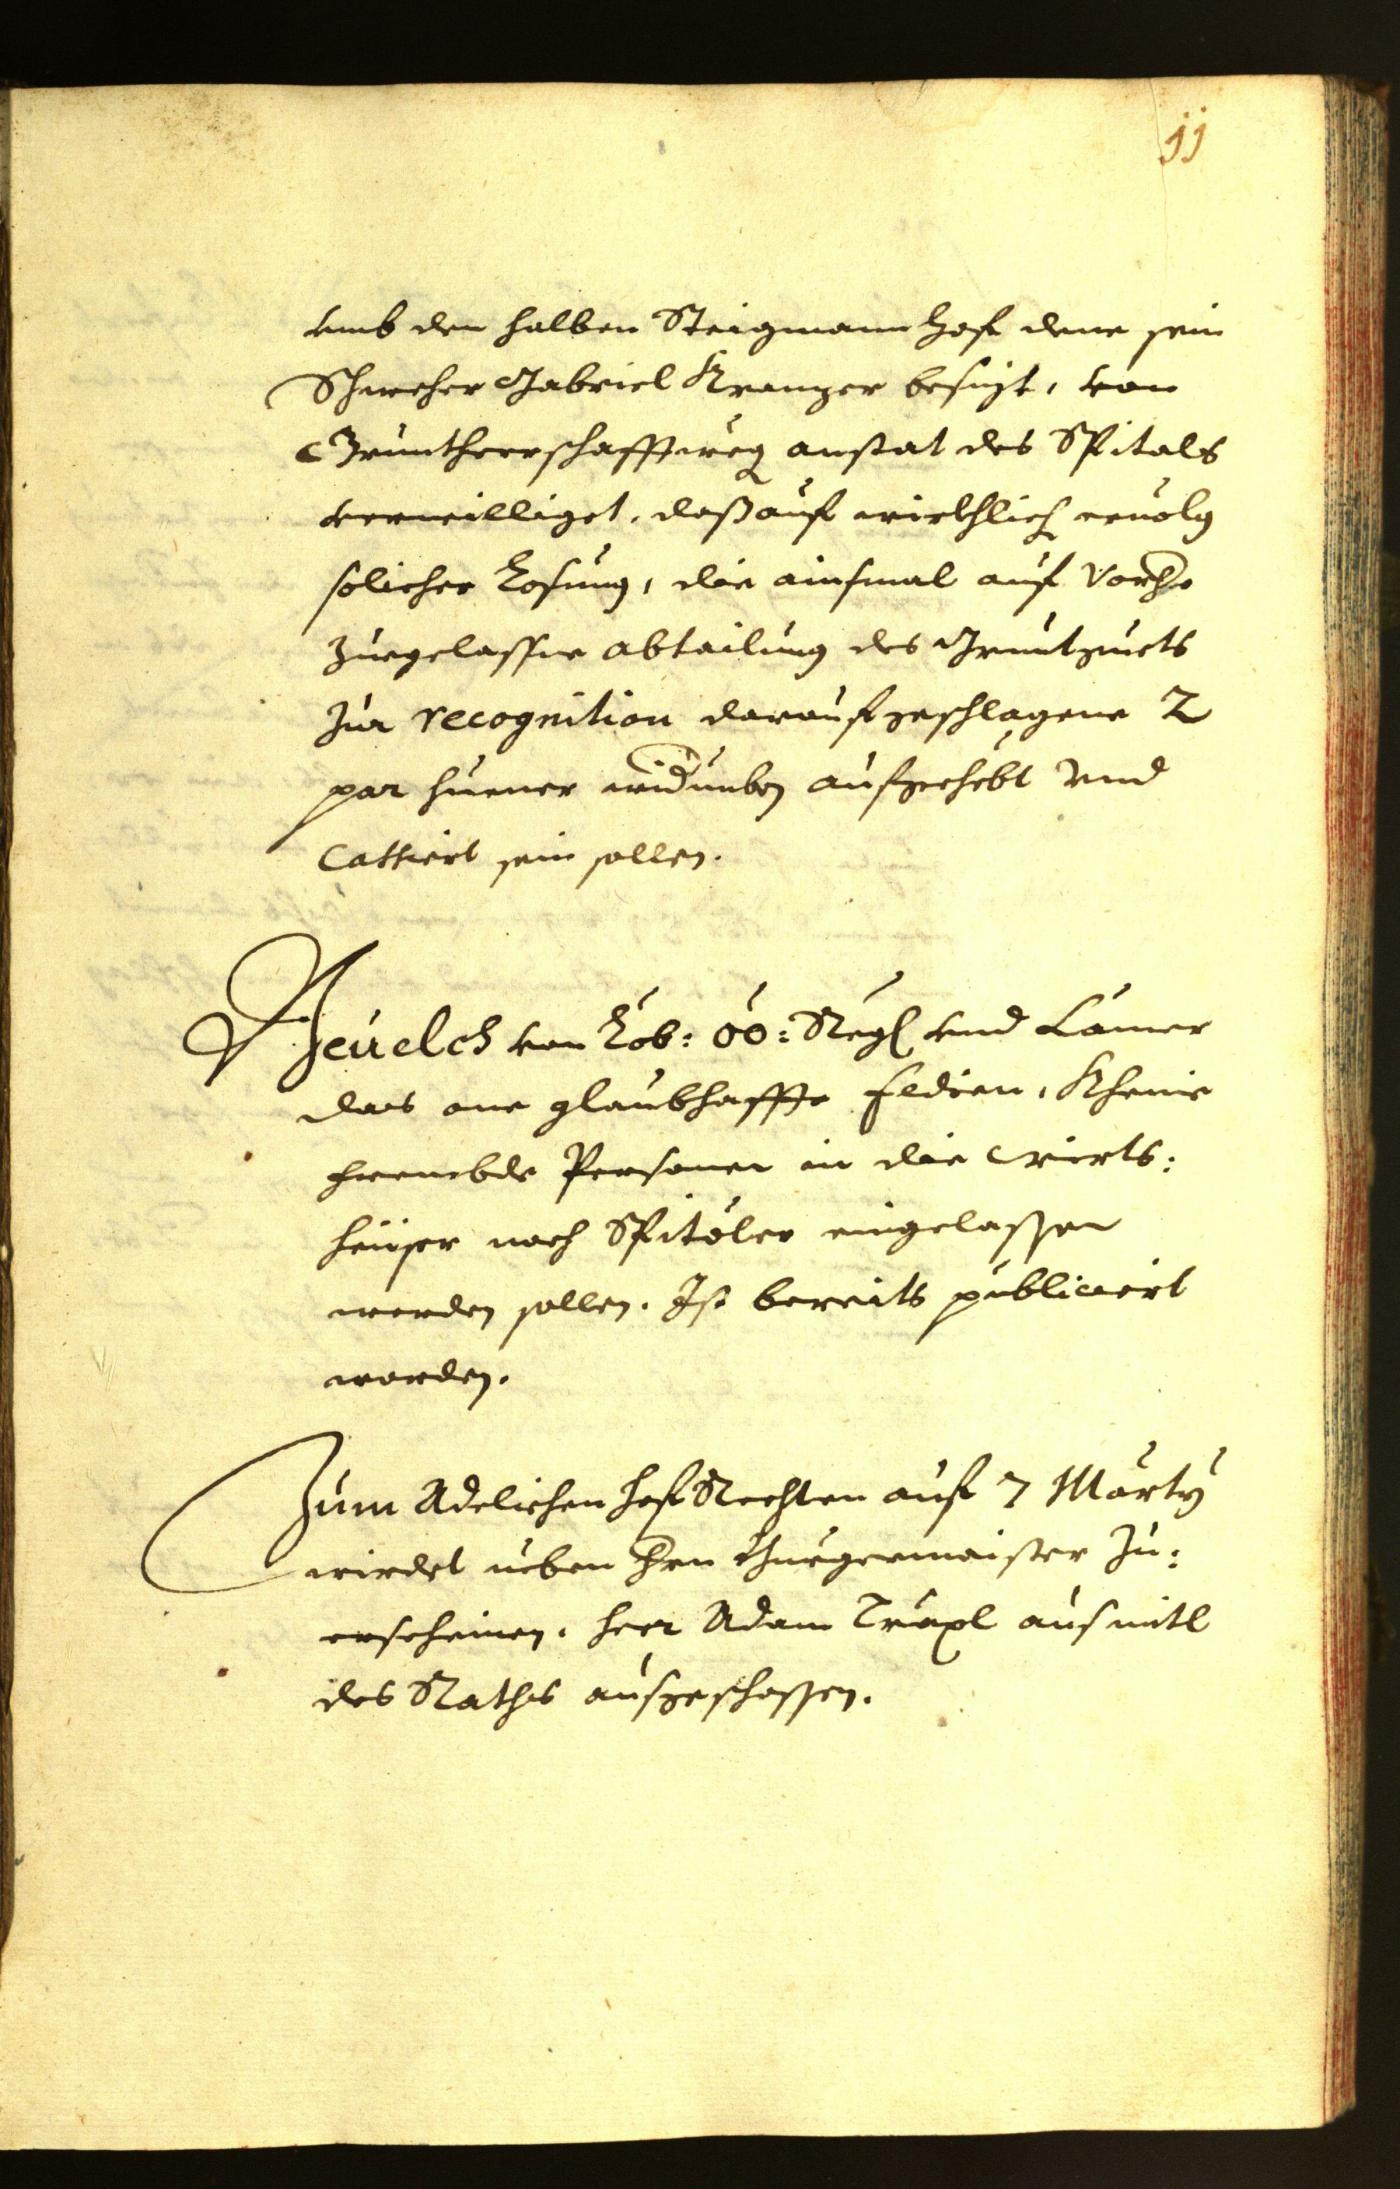 jj
vmb den halben Steigmann Hof dene sein
Schweher Gabriel Kranzer besizt, von
Gruntherrschafft weg anstat des Spitals
verwilliget, daß auf wirkhlich eruolg
solicher Losung, die ainsmal auf Vorhe
zuegelassne abtailung des Gruntzuets
zur recognition darauf geschlagene 2
par huener widerumben aufgehebt vnd
Cassiert sein sollen.
Beuelch von Lob: OÖ: Regl vnd Camer
das one glaubhaffte Feden, Kheine
frembde Personen in die Wirts:
heüser noch Spitöler eingelassen
werden sollen. Ist bereits publiciert
worden.
Zum Adelichen hof Rechten auf 7 Marty
wirdet neben Hrn Burgermaister Zu:
erscheinen, herr Adam Trapl aus mitl
des Raths ausgeschossen.